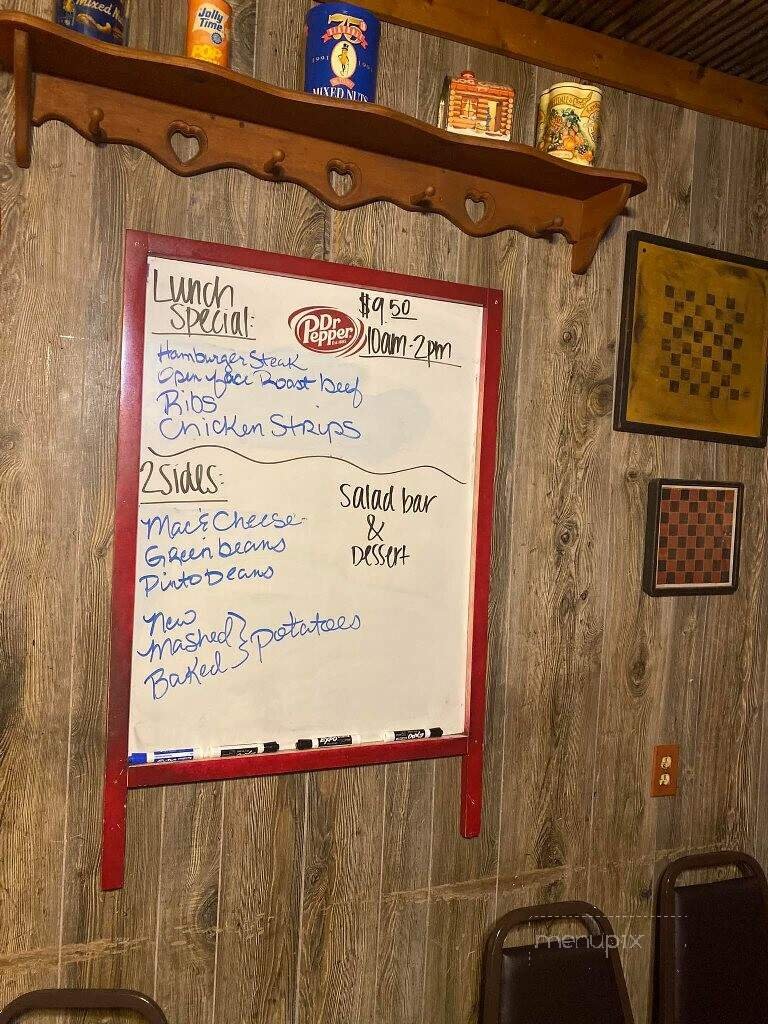 Mixed N
Jolly
Time
POP
75
1991
MIXED NUTS
Lunch
Special:
Dr
Pepper
$9.50
10am-2pm
Hamburger Steak
Open face Roast Beef
Ribs
Chicken Strips
2 Sides:
Mac & Cheese
Green beans
Pinto beans
New
Mashed } potatoes
Baked
Salad bar
&
Dessert
EXPO
EXPO
menupix